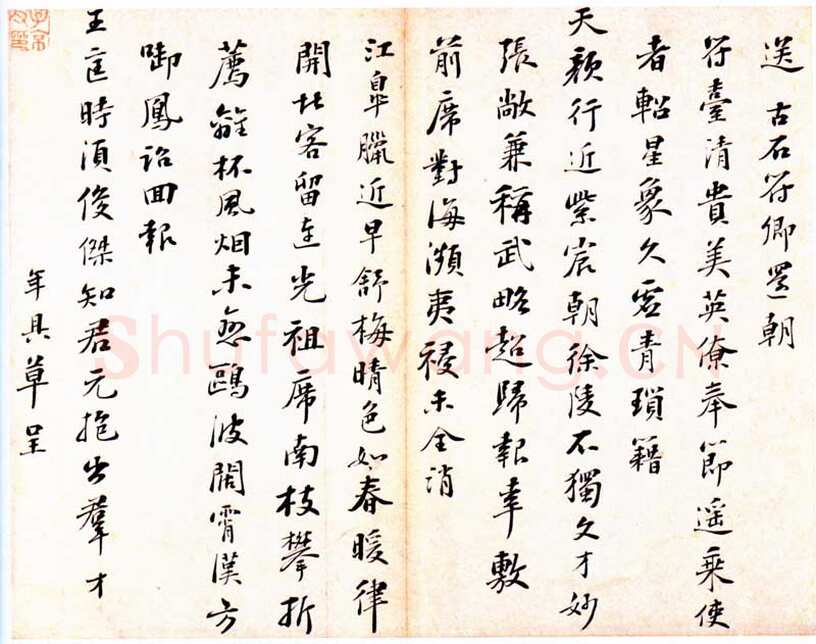 送古石符卿還朝
符臺清貴美英僚奉節遥乘使
者軺星象久虛青瑣籍
天顏行近紫宸朝徐陵不獨文才妙
張敞兼稱武略超歸報幸敷
前席對海瀕夷祲未全消
江臯臘近早舒梅晴色如春暖律
開北客留連光祖席南枝攀折
薦離杯風烟未忽鷗波闊霄漢方
啣鳳詔回報
王庭時須俊傑知君元抱出羣才
年具草呈
Shufawang.CN